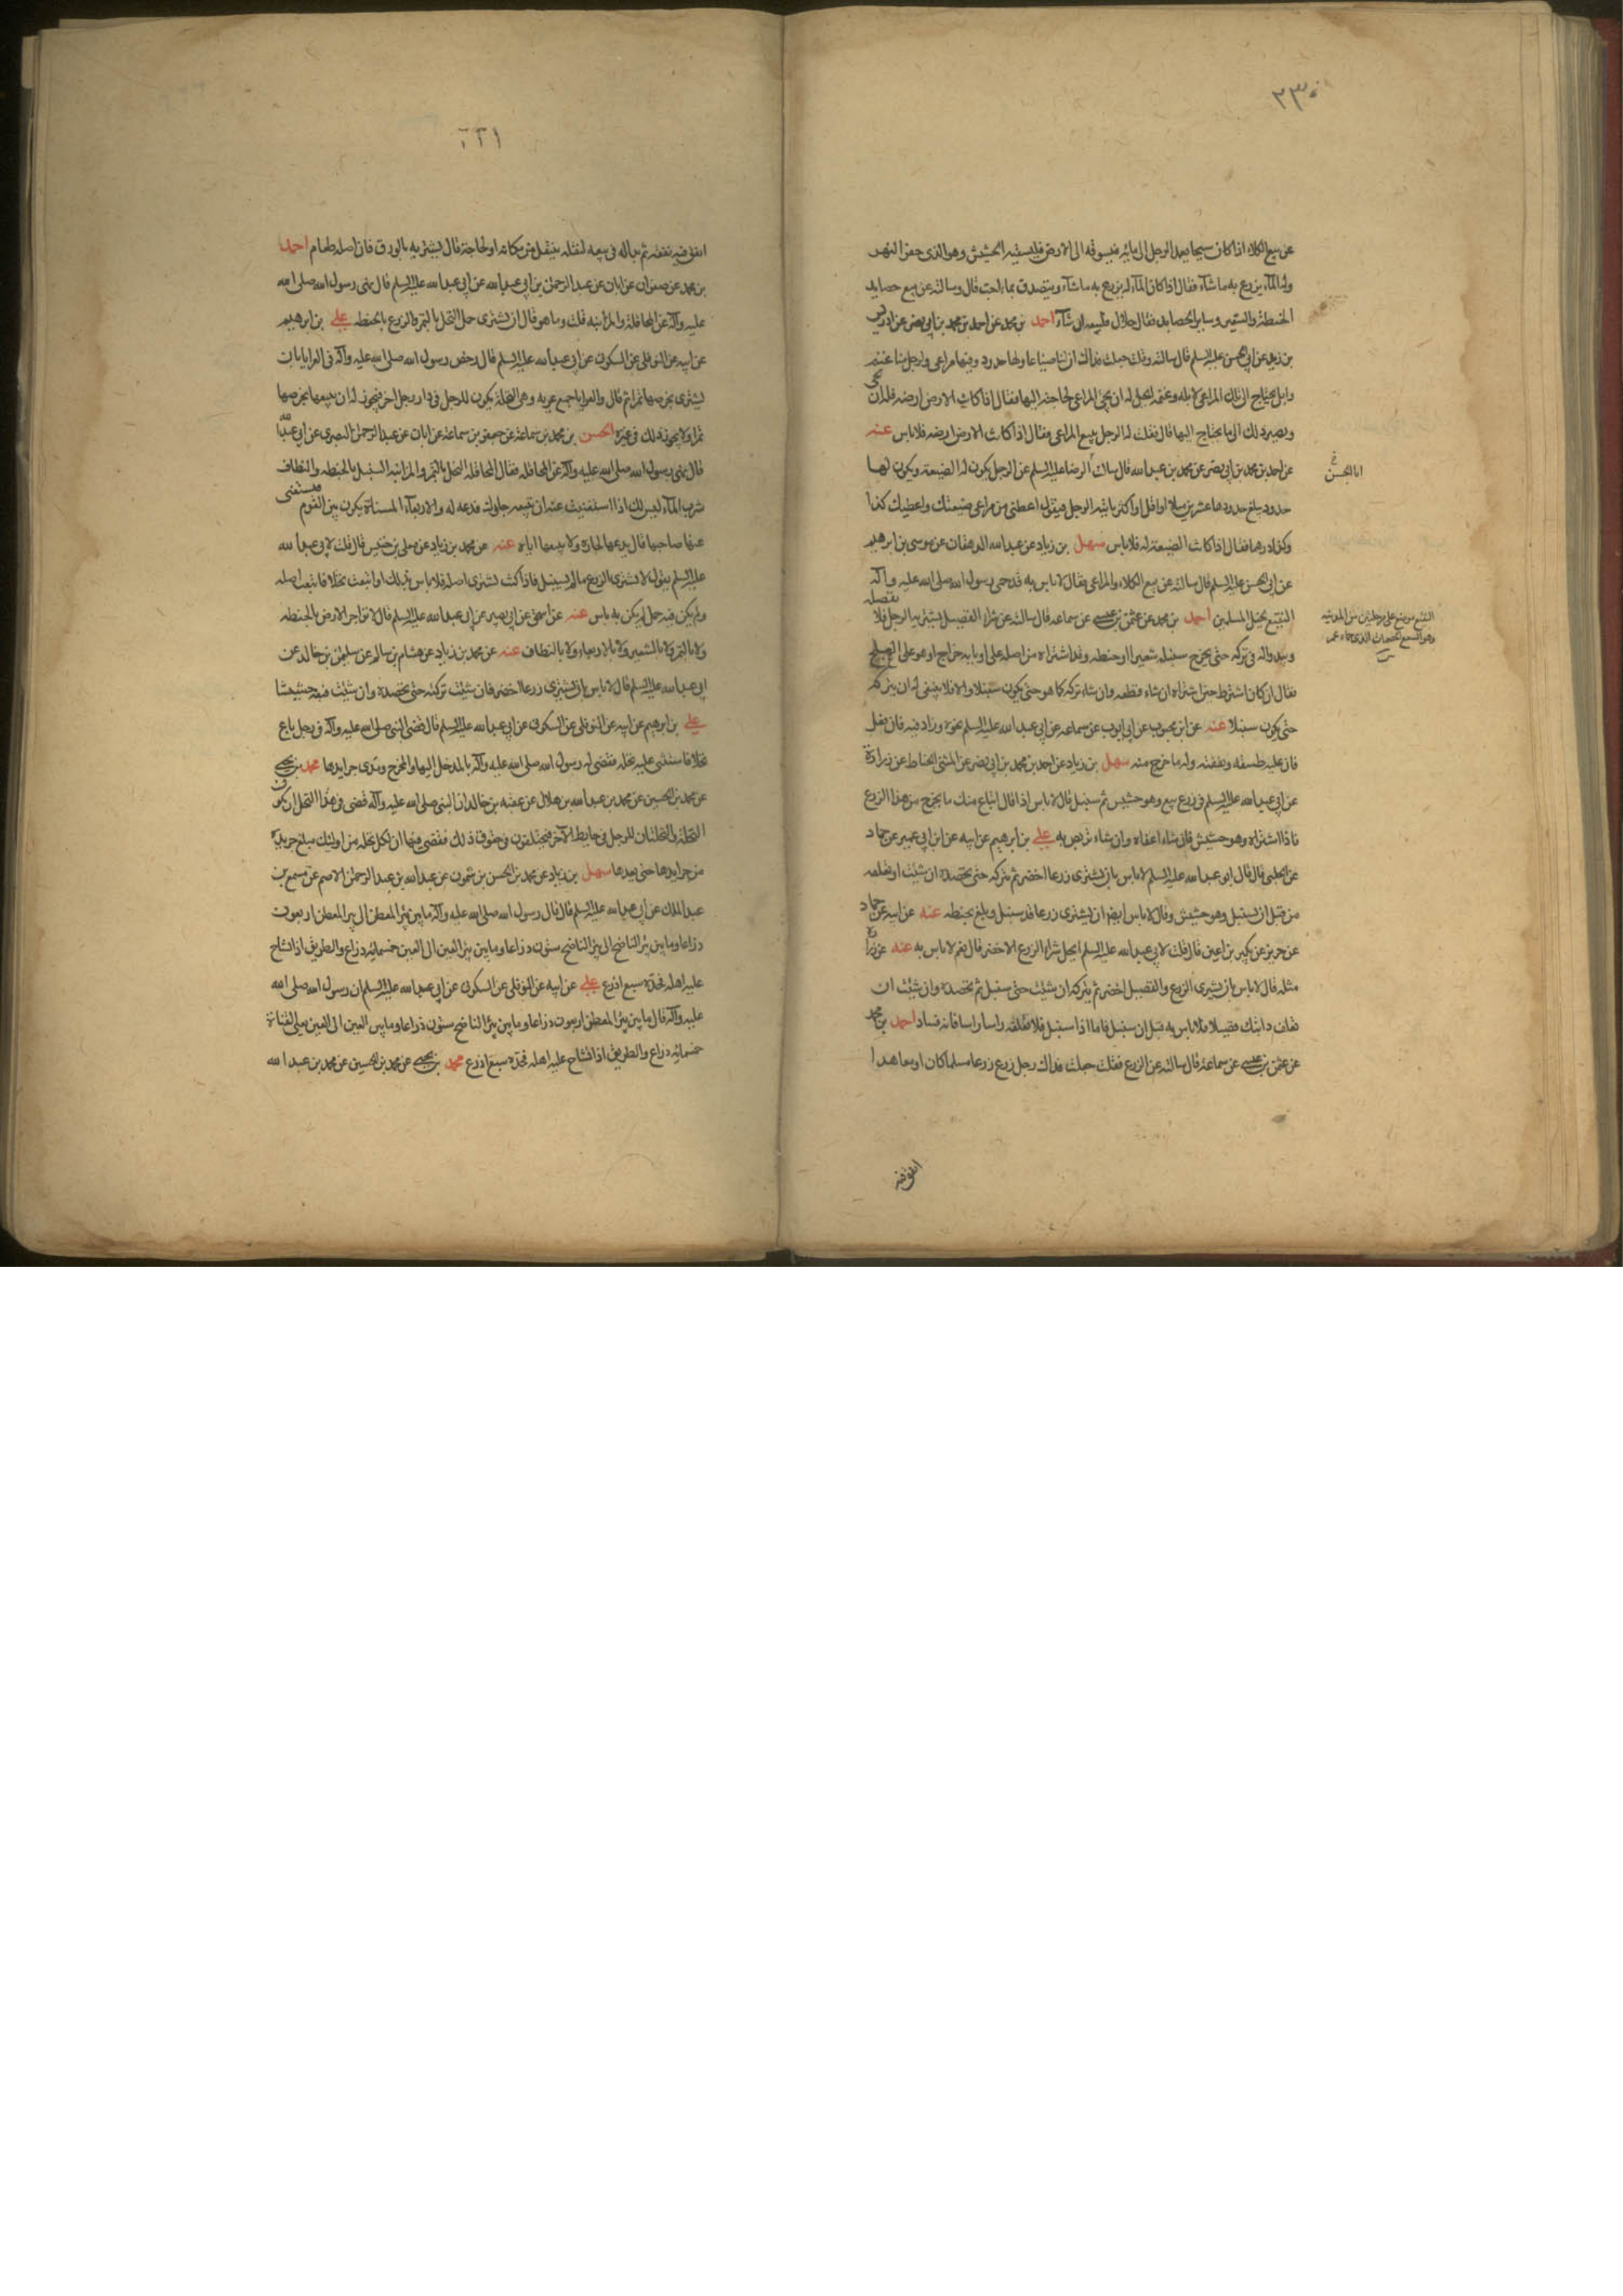 ٢٣٠
عن بيع الكلاء اذا كان سيحا يعمد الرجل الى مائه فيسوقه الى الارض فليسقيه الحشيش وهو الذى حفر النهر
وله الماء يزرع به ما شاء فقال اذا كان الماء له يزرع به ما شاء ويتصدق بما احب قال وسالته عن بيع حصايد
الحنطة والشعير وساير الحصايد فقال حلال فليبعه ان شاء احمد بن محمد عن احمد بن محمد بن ابى نصر عن ادريس
بن زيد عن ابى الحسن عليه السلم قال سالته وقلت جعلت فداك ان لنا ضياعا ولها حدود وفيها مراعى ولرجل منا غنم
وابل يحتاج الى تلك المراعى لابله وغنمه ايحل له ان يحمى المراعى لحاجته اليها فقال اذا كانت الارض ارضه فله ان يحمى
ويصير ذلك الى ما يحتاج اليها قال فقلت له الرجل يبيع المراعى فقال اذا كانت الارض ارضه فلا باس عنه
عن احمد بن محمد بن ابى نصر عن محمد بن عبد الله قال سالت الرضا عليه السلم عن الرجل يكون له الضيعة ويكون لها
ابا الحسن خ
حدود يبلغ حدودها عشرين ميلا او اقل او اكثر ياتيه الرجل فيقول اعطنى من مراعى ضيعتك واعطيك كذا
وكذا درهما فقال اذا كانت الضيعة له فلا باس سهل بن زياد عن عبد الله الدهقان عن موسى بن ابرهيم
عن ابى الحسن عليه السلم قال سالته عن بيع الكلاء والمراعى فقال لا باس به قد حمى رسول الله صلى الله عليه وآله
النقيع لخيل المسلمين احمد بن محمد عن عثمن بن عيسى عن سماعه قال سالته عن شراء القصيل يشتريه الرجل فلا يقصله
النقيع موضع على مرحلتين من المدينه
ويبدو له فى تركه حتى يخرج سنبله شعيرا او حنطه وقد اشتراه من اصله على اربابه خراج او هو على العلج
فقال ان كان اشترط حين اشتراه ان شاء قطعه وان شاء تركه كما هو حتى يكون سنبلا والا فلا ينبغى له ان يتركه
حتى يكون سنبلا عنه عن ابن محبوب عن ابى ايوب عن سماعه عن ابى عبد الله عليه السلم نحوه وزاد فيه فان فعل
فان عليه طسقه ونفقته وله ما خرج منه سهل بن زياد عن احمد بن محمد بن ابى نصر عن المثنى الحناط عن زرارة
عن ابى عبد الله عليه السلم فى زرع بيع وهو حشيش ثم سنبل قال لا باس اذا قال ابتاع منك ما يخرج من هذا الزرع
فاذا اشتراه وهو حشيش فان شاء اعفاه وان شاء تربص به على بن ابرهيم عن ابيه عن ابن ابى عمير عن حماد
عن الحلبى قال قال ابو عبد الله عليه السلم لا باس بان يشترى زرعا اخضر ثم يتركه حتى تحصده ان شئت او تعلفه
من قبل ان يسنبل وهو حشيش وقال لا باس ايضا ان يشترى زرعا قد سنبل وبلغ بحنطه عنه عن ابيه عن حماد
عن حريز عن بكير بن اعين قال قلت لابى عبد الله عليه السلم ايحل شراء الزرع الاخضر قال نعم لا باس به عنه عن زرارة
مثله قال لا باس بان يشترى الزرع والقصيل اخضر ثم يتركه ان شئت حتى سنبل ثم تحصده وان شئت ان
تعلف دابتك قصيلا فلا باس به قبل ان سنبل فاما اذا سنبل فلا تعلفه راسا راسا فانه فساد احمد بن محمد
عن عثمن بن عيسى عن سماعة قال سالته عن الزرع فقلت جعلت فداك رجل زرع زرعا مسلما كان او معاهدا
انفق فيه
انفق فيه نفقه ثم بدا له فى بيعه لنقله ينتقل من مكانه او لحاجة قال يشتريه بالورق فان اصله طعام احمد
بن محمد عن صفوان عن ابان عن عبد الرحمن بن ابى عبد الله عن ابى عبد الله عليه السلم قال نهى رسول الله صلى الله
عليه وآله عن المحاقلة والمزابنه قلت وما هو قال ان يشترى حمل النخل بالتمر والزرع بالحنطه على بن ابرهيم
عن ابيه عن النوفلى عن السكونى عن ابى عبد الله عليه السلم قال رخص رسول الله صلى الله عليه وآله فى العرايا بان
يشترى بخرصها تمرا ثم قال والعرايا جمع عريه وهى النخلة يكون للرجل فى دار رجل اخر فيجوز له ان يبيعها بخرصها
تمرا ولا يجوز ذلك فى غيره الحسن بن محمد بن سماعة عن جعفر بن سماعة عن ابان عن عبد الرحمن البصرى عن ابى عبد الله
قال نهى رسول الله صلى الله عليه وآله عن المحاقله فقال المحاقلة النخل بالتمر والمزابنه السنبل بالحنطه والنطاف
شرب الماء ليس لك اذا استغنيت عنه ان تبيعه جارك تدعه له والاربعاء المسناة يكون بين القوم فيستغنى
عنها صاحبها قال يدعها لجاره ولا يبيعها اياه عنه عن محمد بن زياد عن معلى بن خنيس قال قلت لابى عبد الله
عليه السلم يقول لا يشترى الزرع ما لم يسنبل فاذا كنت تشترى اصله فلا باس بذلك او ابتعت نخلا فابتعت اصله
ولم يكن فيه حمل لم يكن به باس عنه عن اسحق عن ابى بصير عن ابى عبد الله عليه السلم قال لا تواجر الارض بالحنطه
ولا بالتمر ولا بالشعير ولا بالاربعاء ولا بالنطاف عنه عن محمد بن زياد عن هشام بن سالم عن سليمن بن خالد عن
ابى عبد الله عليه السلم قال لا باس بان يشترى زرعا اخضر فان شئت تركته حتى تحصده وان شئت فبعه حشيشا
على بن ابرهيم عن ابيه عن النوفلى عن السكونى عن ابى عبد الله عليه السلم قال قضى النبى صلى الله عليه وآله فى رجل باع
نخلا فاستثنى عليه نخله فقضى له رسول الله صلى الله عليه وآله بالمدخل اليها والمخرج ومدى جرايدها محمد بن يحيى
عن محمد بن الحسين عن محمد بن عبد الله بن هلال عن عقبه بن خالد ان النبى صلى الله عليه وآله قضى فى هذا النخل ان يكون
النخلة والنخلتان للرجل فى حايط الآخر فيختلفون فى حقوق ذلك فقضى فيها ان لكل نخله من اولئك مبلغ جريدة
من جرايدها حتى بعدها سهل بن زياد عن محمد بن الحسن بن شمون عن عبد الله بن عبد الرحمن الاصم عن مسمع بن
عبد الملك عن ابى عبد الله عليه السلم قال قال رسول الله صلى الله عليه وآله ما بين بئر المعطن الى بئر المعطن اربعون
ذراعا وما بين بئر الناضح الى بئر الناضح ستون ذراعا وما بين بئر العين الى العين خمسمائه ذراع والطريق اذا تشاح
عليه اهله فحده سبع اذرع على عن ابيه عن النوفلى عن السكونى عن ابى عبد الله عليه السلم ان رسول الله صلى الله
عليه وآله قال ما بين بئر المعطن اربعون ذراعا وما بين بئر الناضح ستون ذراعا وما بين العين الى العين يعنى القناة
خمسمائه ذراع والطريق اذا تشاح عليه اهله فحده سبع اذرع محمد بن يحيى عن محمد بن الحسين عن محمد بن عبد الله